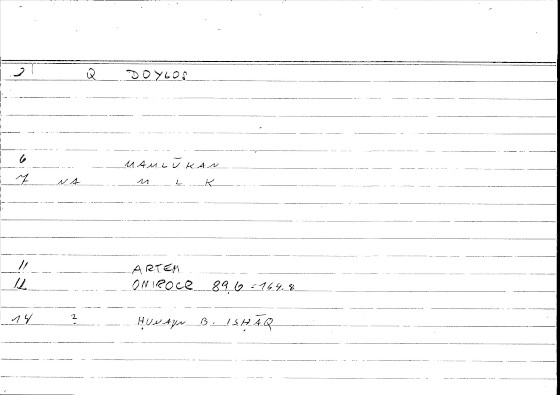 21 Q DOYLOS
6 MAMLŪKAN
7 NA M L K
11 ARTEM
12 ONIROCR 89.6 = 164.8
14 2 ḤUNAYN B. ISḤĀQ